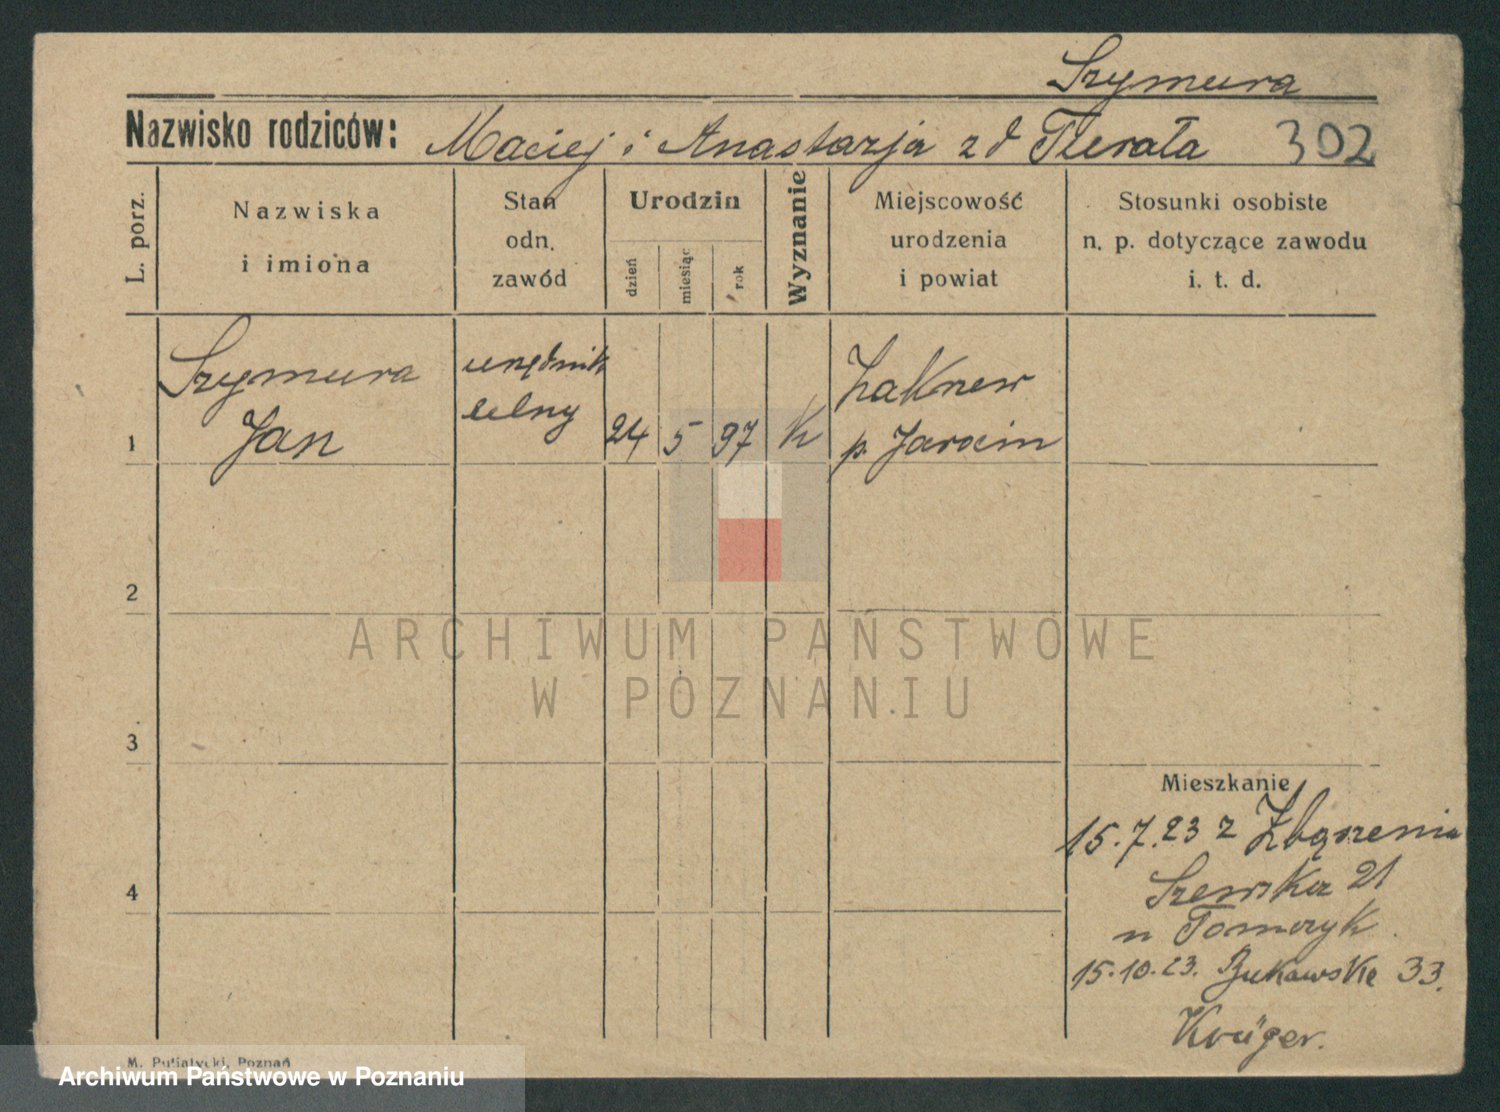 Szymura
Nazwisko rodziców: Maciej i Anastazja z d Tterała 302
L. porz.
Nazwiska
i imiona
Stan
odn.
zawód
Urodzin
dzień
miesiąc
rok
Wyznanie
Miejscowość
urodzenia
i powiat
Stosunki osobiste
n. p. dotyczące zawodu
i. t. d.
1
Szymura
Jan
urzędnik
celny
24 5 97 K
Żaknew
p. Jarocin
2
3
4
Mieszkanie
15.7.23 z Zbąszenia
Szewska 21
u Tomczyk
15.10.23. Bukowska 33.
Krüger.
M. Putiatycki, Poznań
ARCHIWUM PAŃSTWOWE
W POZNANIU
Archiwum Państwowe w Poznaniu